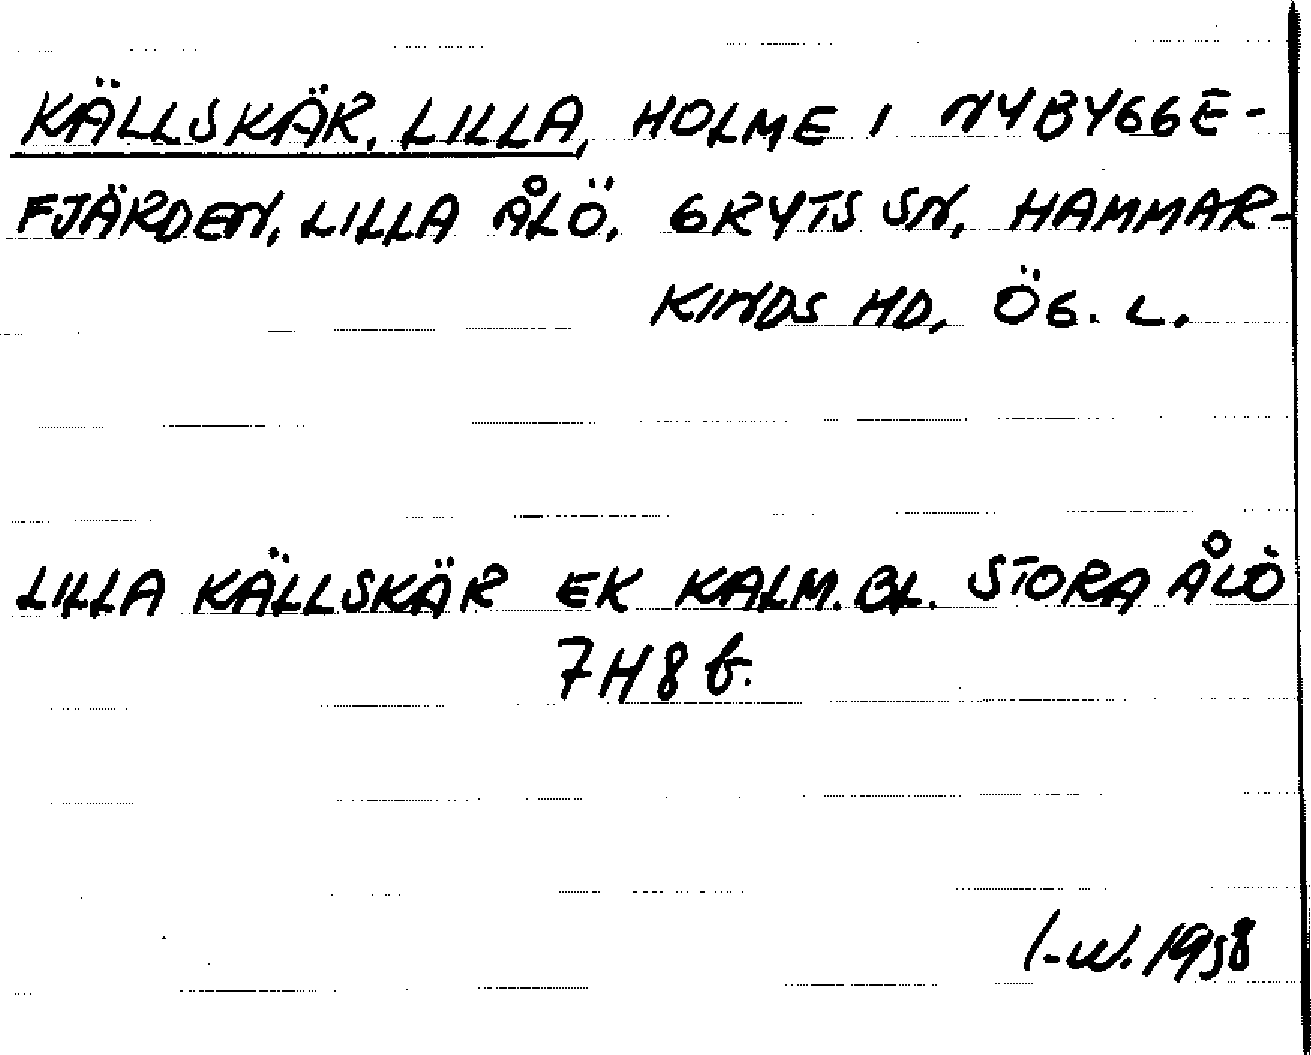 KÄLLSKÄR, LILLA, HOLME I NYBYGGE-
FJÄRDEN, LILLA ÅLÖ, GRYTS SN, HAMMAR-
KINDS HD, ÖG. L.
LILLA KÄLLSKÄR EK KALM. BL. STORA ÅLÖ
7H8 b.
I-W. 1958